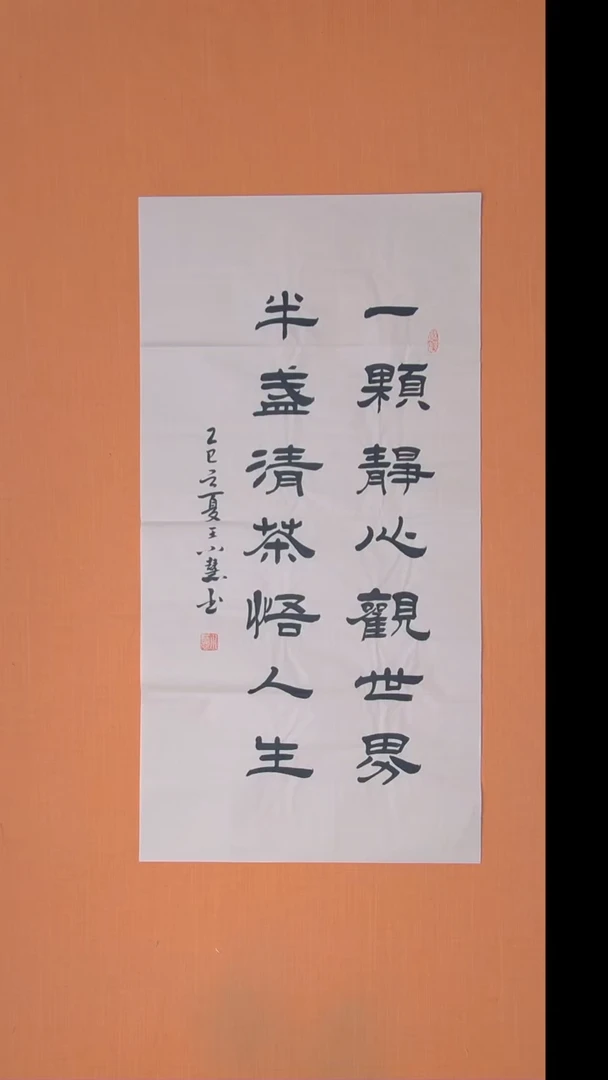 一顆靜心觀世界
半盞清茶悟人生
乙巳立夏王小慧书